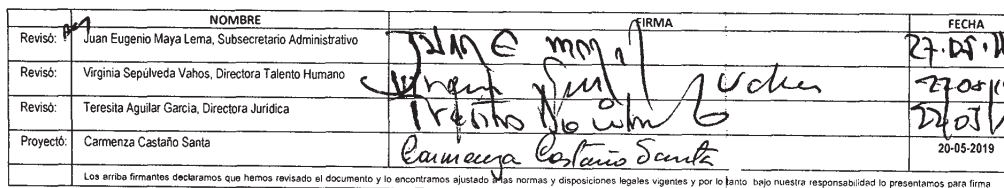 NOMBRE FIRMA FECHA
Revisó: Juan Eugenio Maya Lema, Subsecretario Administrativo
Revisó: Virginia Sepúlveda Vahos, Directora Talento Humano
Revisó: Teresita Aguilar Garcia, Directora Jurídica
Proyectó: Carmenza Castaño Santa Carmenza Castaño Santa 20-05-2019
Los arriba firmantes declaramos que hemos revisado el documento y lo encontramos ajustado a las normas y disposiciones legales vigentes y por lo tanto bajo nuestra responsabilidad lo presentamos para firma